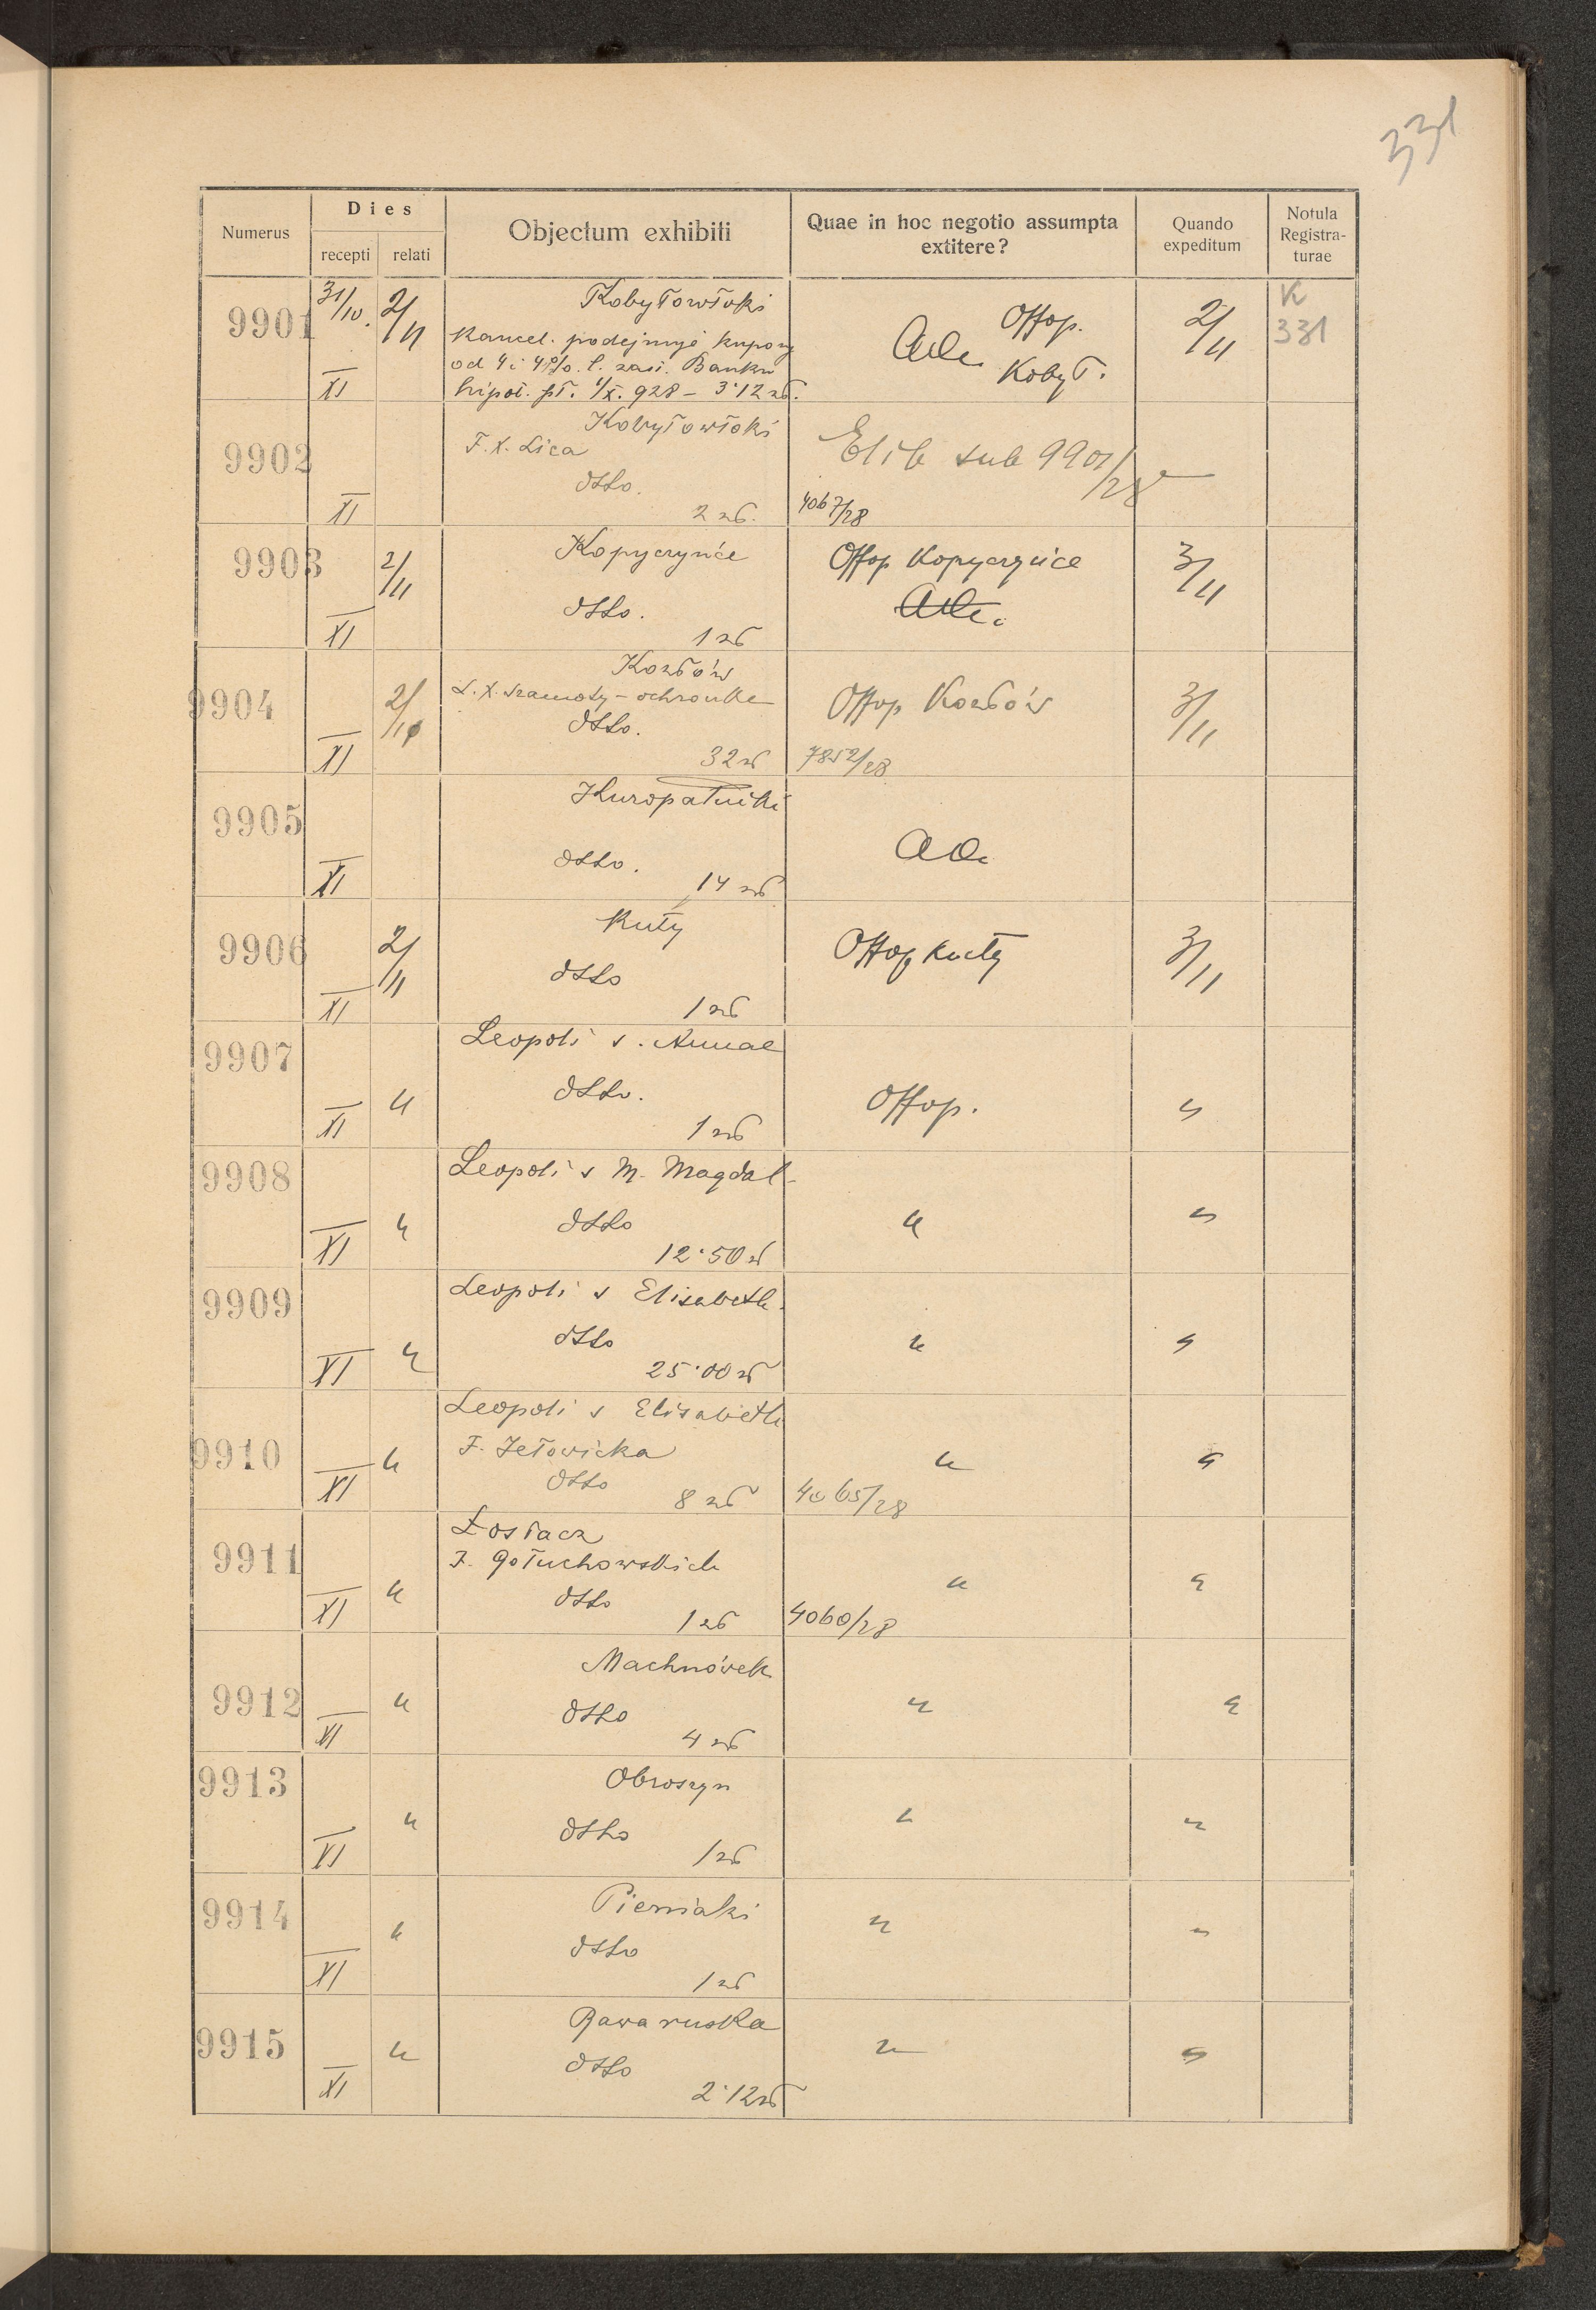 331
Numerus
Dies
recepti
relati
Objectum exhibiti
Quae in hoc negotio assumpta
extitere?
Quando
expeditum
Notula
Registra-
turae
9901
31/10.
XI
2/11
Kobyłowłoki
Kancel. podejmuje kupony
od 4 i 4½%. l. zast. Banku
hipot. pł. 1/X. 928 – 3·12 zł.
Offop.
Kobył.
2/11
K
331
9902
XI
Kobyłowłoki
F. X. Lica
dtto.
2 zł.
sub 9901/28
4067/28
9903
XI
2/11
Kopyczyńce
dtto.
1 zł
Offop Kopyczyńce
3/11
9904
XI
2/11
Kozłów
Szamoty – ochronka
dtto.
32 zł
Offop Kozłów
7852/28
3/11
9905
XI
Kuropatniki
dtto.
14 zł
9906
XI
2/11
Kuty
dtto
1 zł
Offop Kuty
3/11
9907
XI
"
Leopoli s. Annae
dtto.
1 zł
Offop.
"
9908
XI
"
Leopoli s M. Magdal.
dtto
12·50 zł
"
"
9909
XI
"
Leopoli s Elisabeth.
dtto
25·00 zł
"
"
9910
XI
"
Leopoli s Elisabeth
F. Jełowicka
dtto
8 zł
"
4065/28
"
9911
XI
"
Łosiacz
F. Gołuchowskich
dtto
1 zł
"
4060/28
"
9912
XI
"
Machnówek
dtto
4 zł
"
"
9913
XI
"
Obroszyn
dtto
1 zł
"
"
9914
XI
"
Pieniaki
dtto
1 zł
"
"
9915
XI
"
Rawa ruska
dtto
2·12 zł
"
"